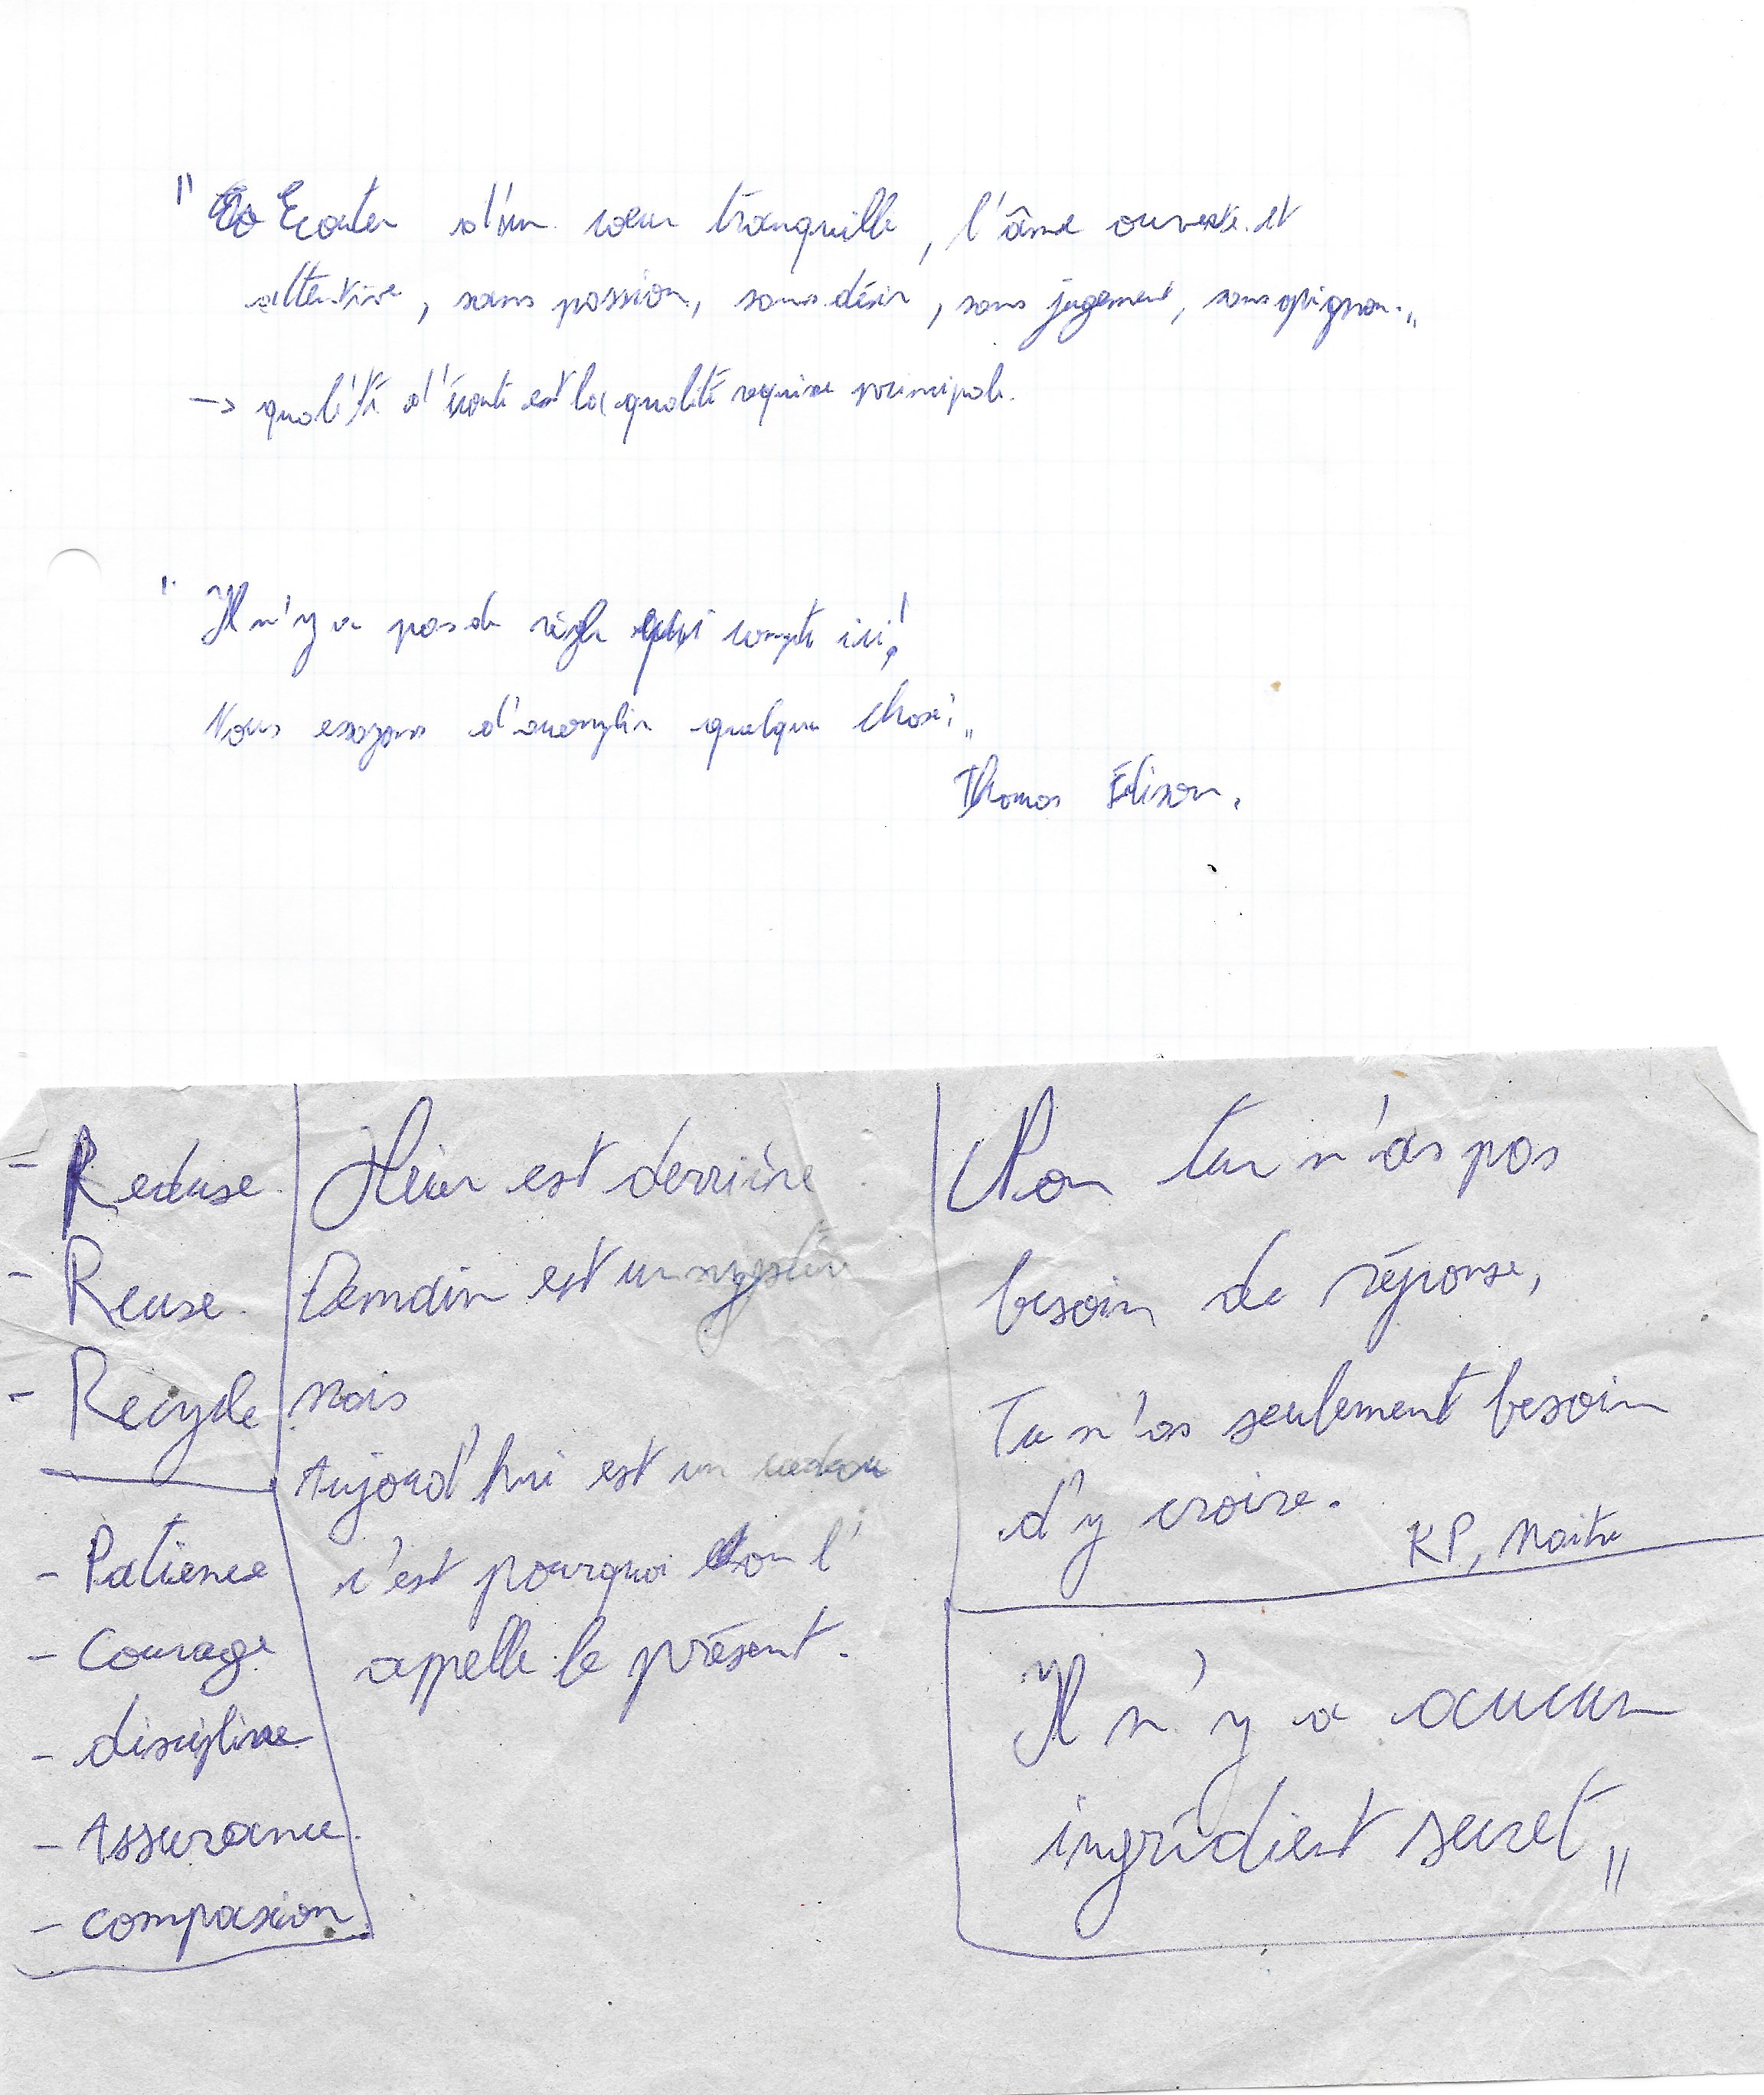 " Ecouter d'un cœur tranquille, l'âme ouverte et
attentive, sans passion, sans désir, sans jugement, sans opignon. "
-> qualité d'écoute est la qualité requise principale.
" Il n'y a pas de règle qui compte ici!
Nous essayons d'accomplir quelque chose! "
Thomas Édison.
- Reduse
- Reuse
- Recycle
- Patience
- Courage
- discipline
- Assurance
- compasion
Hier est derrière
Demain est un mystère
Mais
Aujourd'hui est un cadeau
c'est pourquoi on l'
appelle le présent.
Non tu n'as pas
besoin de réponse,
Tu n'as seulement besoin
d'y croire.
KP, Maitre
Il n'y a aucun
ingrédient secret "